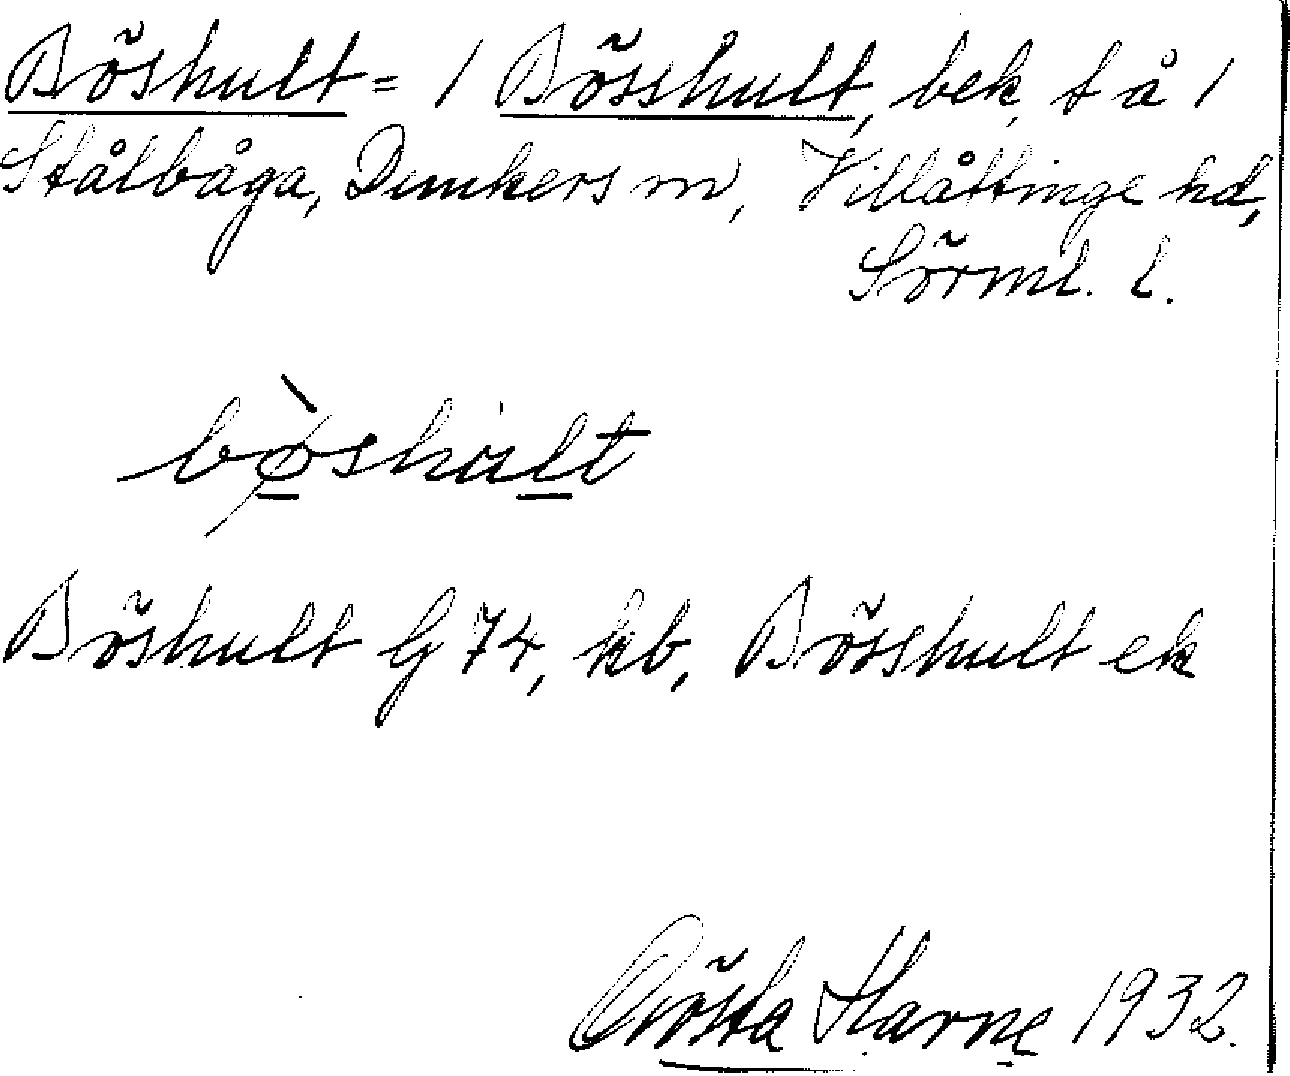 Böshult = / Bösshult, bek, t å /
Stålboga, Dunkers sn, Villåttinge hd,
Sörml. l.
bø̀shùlt
Böshult G 74, kb, Bösshult ek
Gösta Harne 1932.